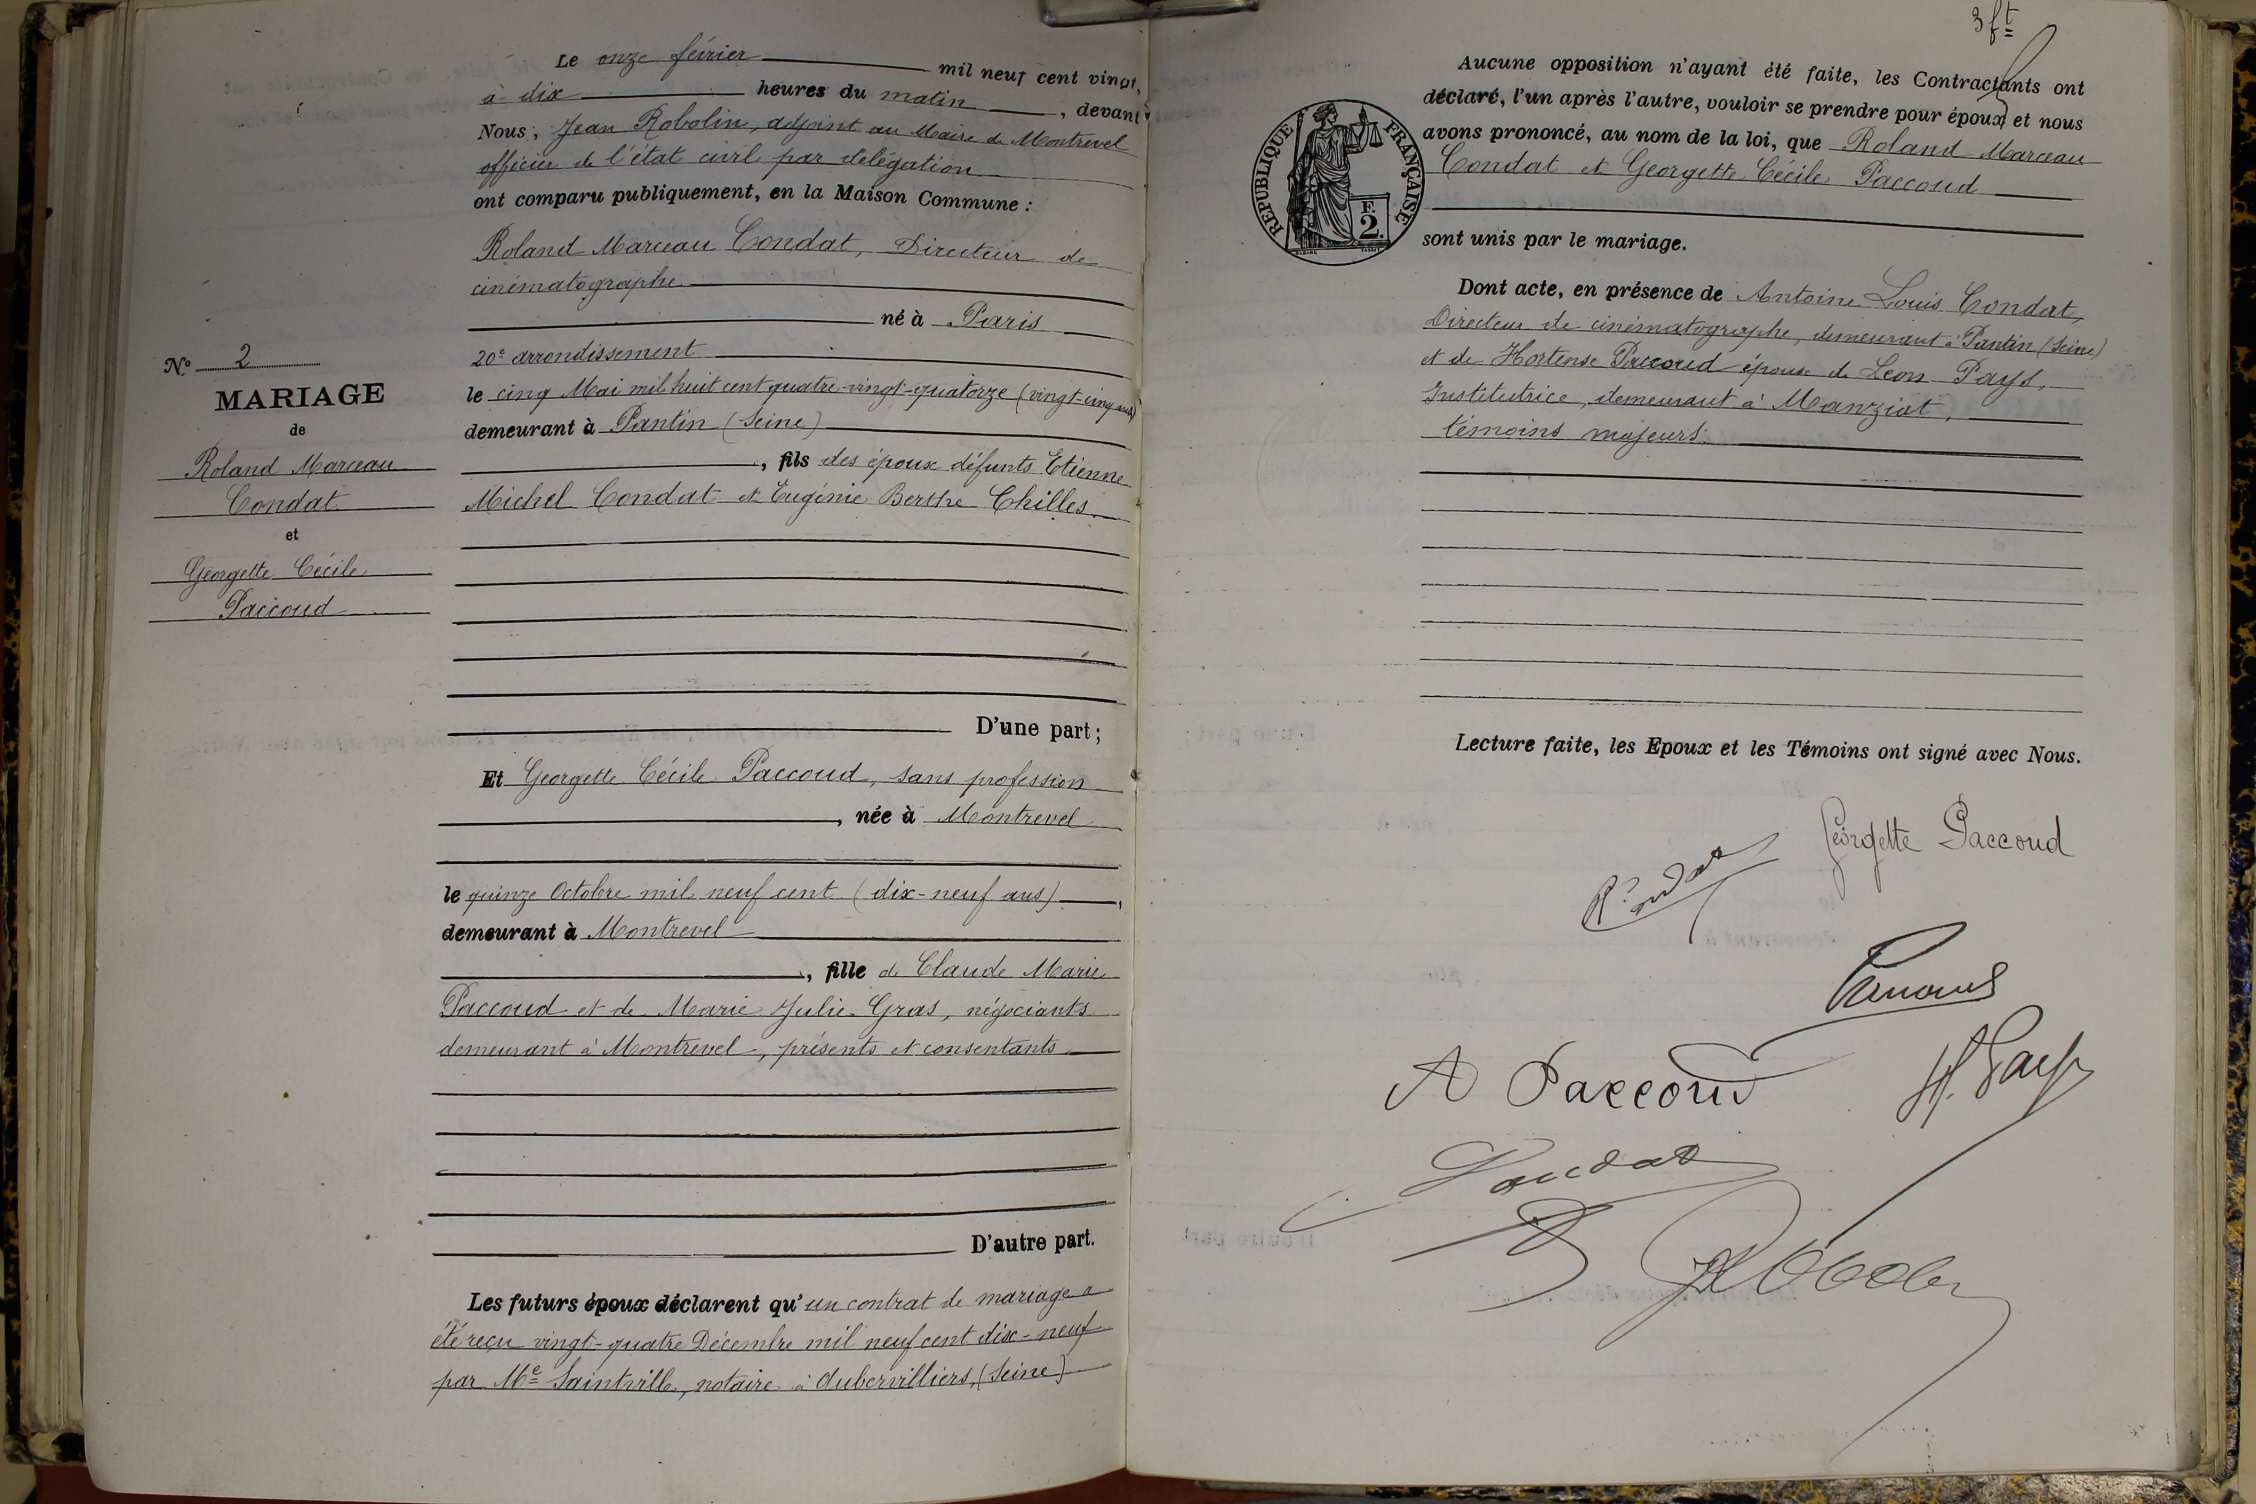 Le onze février mil neuf cent vingt,
à dix heures du matin, devant
Nous, Jean Robolin, adjoint au Maire de Montrevel
officier de l'état civil par délégation
ont comparu publiquement, en la Maison Commune :
Roland Marceau Condat, Directeur de
cinématographe
né à Paris
20e arrondissement
le cinq Mai mil huit cent quatre-vingt-quatorze (vingt-cinq ans)
demeurant à Pantin (Seine)
, fils des époux défunts Etienne
Michel Condat et Eugénie Berthe Chilles.
D'une part ;
No 2
MARIAGE
de
Roland Marceau
Condat
et
Georgette Cécile
Paccoud
Et Georgette Cécile Paccoud, sans profession
, née à Montrevel
le quinze Octobre mil neuf cent (dix-neuf ans),
demeurant à Montrevel
, fille de Claude Marie
Paccoud et de Marie Julie Gras, négociants
demeurant à Montrevel, présents et consentants
D'autre part.
Les futurs époux déclarent qu'un contrat de mariage a
été reçu vingt-quatre Décembre mil neuf cent dix-neuf
par Me Saintville, notaire à Aubervilliers, (Seine)
3 ft
RÉPUBLIQUE FRANÇAISE
F.
2.
Aucune opposition n'ayant été faite, les Contractants ont
déclaré, l'un après l'autre, vouloir se prendre pour époux et nous
avons prononcé, au nom de la loi, que Roland Marceau
Condat et Georgette Cécile Paccoud
sont unis par le mariage.
Dont acte, en présence de Antoine Louis Condat,
Directeur de cinématographe, demeurant à Pantin (Seine)
et de Hortense Paccoud épouse de Léon Pays,
Institutrice, demeurant à Manziat,
témoins majeurs.
Lecture faite, les Epoux et les Témoins ont signé avec Nous.
Georgette Paccoud
R. Condat
A Paccoud
H. Pays
Condat